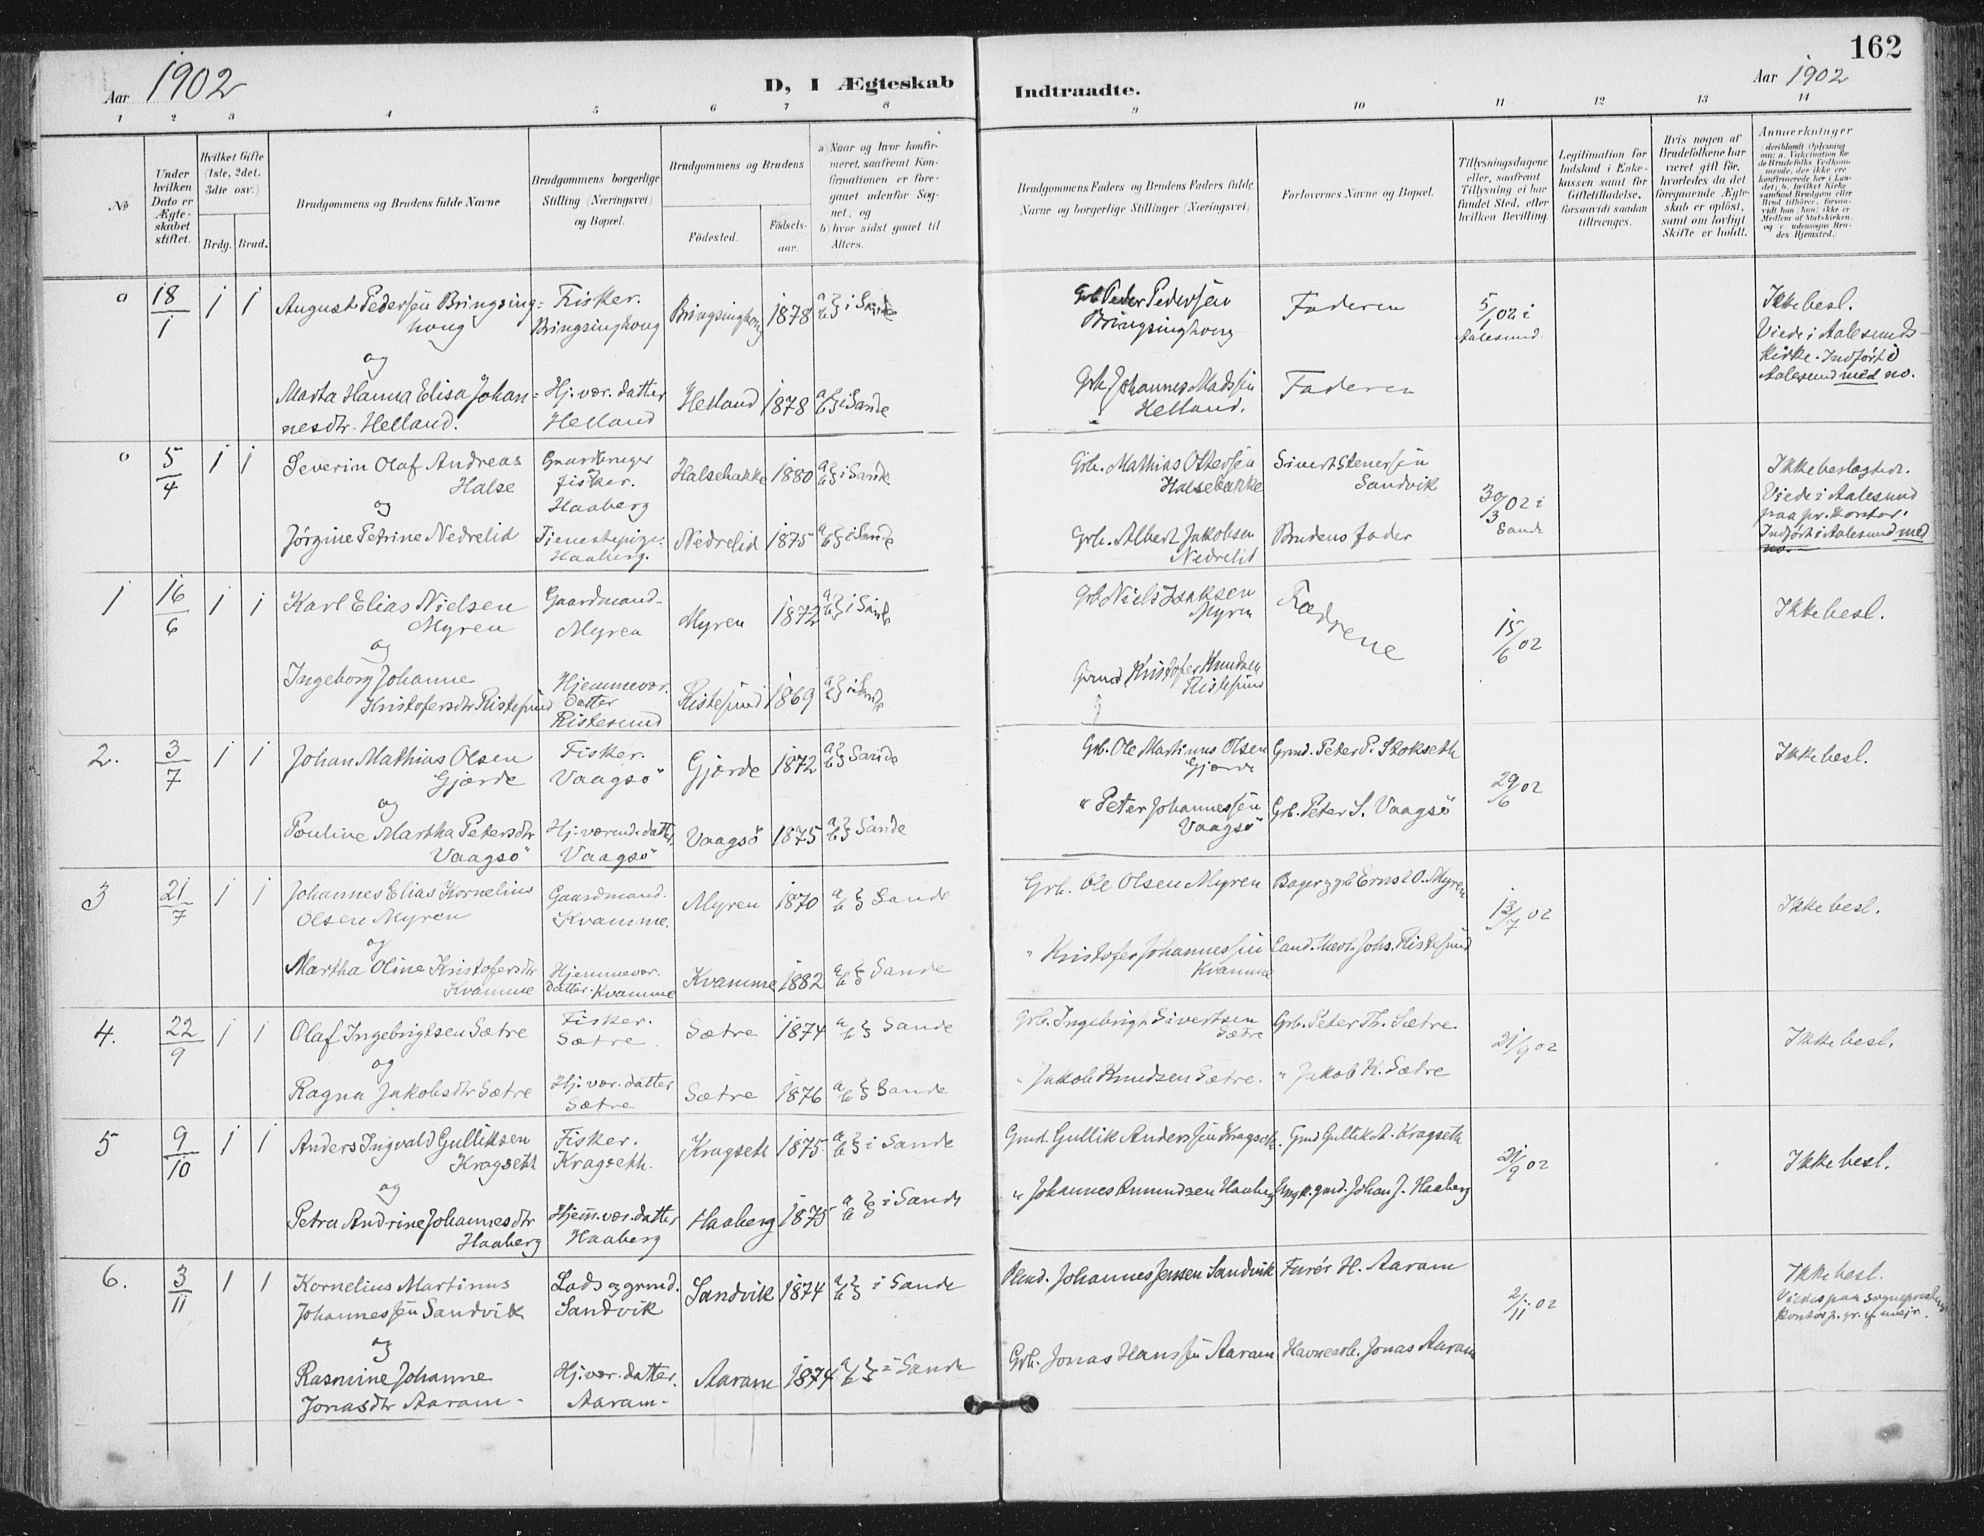 162
Aar 1902
D, I Ægteskab
Indtraadte.
Aar 1902
1 2 3 4 5 6 7 8 9 10 11 12 13 14
No
Under hvilken Dato er Ægteskabet stiftet.
Hvilket Gifte (1ste, 2det, 3die osv.)
Brdg. Brud.
Brudgommens og Brudens fulde Navne
Brudgommens borgerlige Stilling (Næringsvei) og Bopæl.
Brudgommens og Brudens
Fødested.
Fødselsaar.
a) Naar og hvor konfirmeret, saafremt Konfirmationen er foregaaet udenfor Sognet, og
b) hvor sidst gaaet til Alters.
Brudgommens Faders og Brudens Faders fulde Navne og borgerlige Stillinger (Næringsvei)
Forlovernes Navne og Bopæl.
Tillysningsdagene eller, saafremt Tillysning ei har fundet Sted, efter hvilken Bevilling.
Legitimation for Indskud i Enkekassen samt for Giftetilladelse, forsaavidt saadan tiltrænges.
Hvis nogen af Brudefolkene har været gift før, hvorledes da det foregaaende Ægteskab er opløst, samt om lovligt Skifte er holdt.
Anmerkninger (deriblandt Oplysning om: a. Vakcination for de Brudefolks Vedkommende, der ikke ere konfirmerede her i Landet; b. hvilket Kirkesamfund Brudgom eller Brud tilhører, forsaavidt han (hun) ikke er Medlem af Statskirken, og c. udensogns Brudes Hjemsted.)
0 18/1 1 1 August Pedersen Bringsinghoug
Fisker. Bringsinghoug
Bringsinghoug 1878 a b } i Sande
Grb. Peder Pedersen Bringsinghoug
Faderen
5/1 02 i Aalesund.
Ikke besl. Viede i Aalesunds Kirke. Indført i Aalesund med no.
og
Marta Hanna Elisa Johannesdtr. Helland.
Hj. vær. datter Helland
Helland 1878 a b } i Sande
Grb. Johannes Madssen Helland.
Faderen
0 5/4 1 1 Severin Olaf Andreas Halse
Gaardbruger fisker. Haaberg
Halsebakke 1880 a b } i Sande
Grb. Mathias Ottersen Halsebakke
Sivert Stenersen Sandvik
30/3 02 i Sande
Ikke beslægtede. Viede i Aalesund paa pr. kontor. Indført i Aalesund med no.
og
Jørgine Petrine Nedrelid
Tjenestepige. Haaberg.
Nedrelid 1875 a b } i Sande
Grb. Albert Jakobsen Nedrelid
Brudens fader
1 16/6 1 1 Karl Elias Nielsen Myren
Gaardmand. Myren
Myren 1872 a b } i Sande
Grb. Niels Isaksen Myren
Fædrene
15/6 02
Ikke besl.
og
Ingeborg Johanne Kristofersdtr Ristesund
Hjemmevær. datter Ristesund
Ristesund 1869 a b } i Sande
Grmd. Kristofer Knudsen Ristesund
2. 3/7 1 1 Johan Mathias Olsen Gjærde
Fisker. Vaagsö
Gjærde 1872 a b } Sande
Grb. Ole Martinus Olsen Gjærde
Grmd. Peter P. Stokseth
29/6 02
Ikke besl.
og
Pouline Martha Petersdtr Vaagsö
Hj. værende datter. Vaagsö
Vaagsö 1875 a b } Sande
" Peter Johannessen Vaagsö
Grb. Peter S. Vaagsö
3 21/7 1 1 Johannes Elias Kornelius Olsen Myren
Gaardmand. Kvamme.
Myren 1870 a b } Sande
Grb. Ole Olsen Myren
Ernst O. Myren
13/7 02
Ikke besl.
og
Martha Oline Kristofersdtr Kvamme
Hjemmevær. datter. Kvamme
Kvamme 1882 a b } Sande
" Kristofer Johannessen Kvamme
Cand. theol. Johs. Ristesund
4. 22/9 1 1 Olaf Ingebrigtsen Sætre
Fisker. Sætre
Sætre 1874 a b } Sande
Grb. Ingebrigt Sivertsen Sætre
Grb. Peter Th. Sætre.
21/9 02
Ikke besl.
og
Ragna Jakobsdtr Sætre
Hj. vær. datter Sætre
Sætre 1876 a b } Sande
" Jakob Knudsen Sætre.
" Jakob K. Sætre
5 9/10 1 1 Anders Ingvald Gulliksen Kragseth
Fisker. Kragseth.
Kragseth 1875 a b } i Sande
Grmd. Gullik Anderssen Kragseth.
Grmd Gullik A. Kragseth
21/9 02
Ikke besl.
og
Petra Andrine Johannesdtr Haaberg
Hjem. vær. datter Haaberg
Haaberg 1875 a b } i Sande
" Johannes Amundsen Haaberg
Ungk. grmd. Johan J. Haaberg
6. 3/11 1 1 Kornelius Martinus Johannessen Sandvik
Lods og grmd. Sandvik
Sandvik 1874 a b } i Sande
Johannes Jenssen Sandvik
Furér H. Aaram
2/11 02
Ikke besl. Viedes paa sogneprestens kontor p. gr. af uvejr.
og
Rasmine Johanne Jonasdtr Aaram.
Hj. vær. datter. Aaram.
Aaram 1874 a b } i Sande
Grb. Jonas Hanssen Aaram
Jonas Aaram